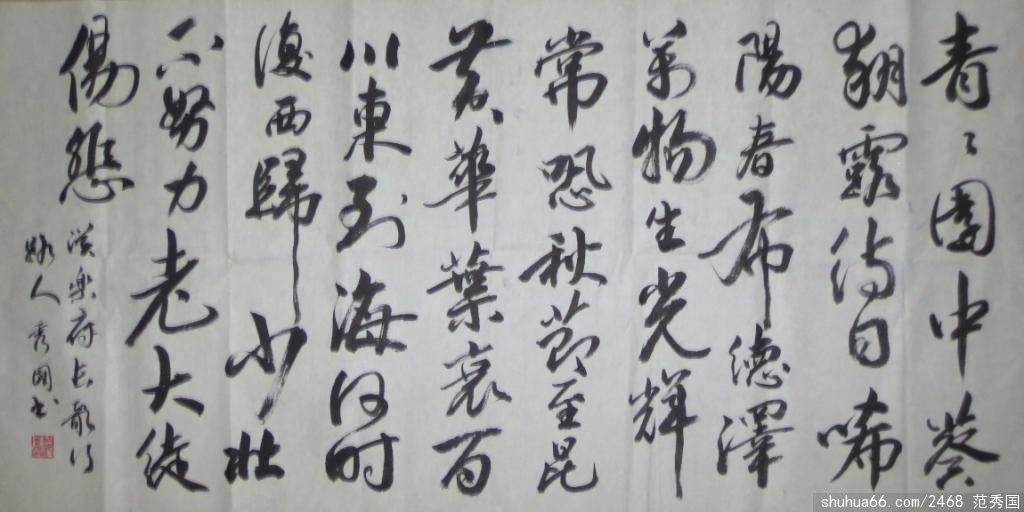 青〻園中葵
朝露待日唏
陽春布德澤
萬物生光輝
常恐秋節至昆
黄華葉衰百
川東到海何时
復西歸少壮
不努力老大徒
傷悲
漢樂府長歌行
人秀國书
shuhua66.com/2468 范秀国